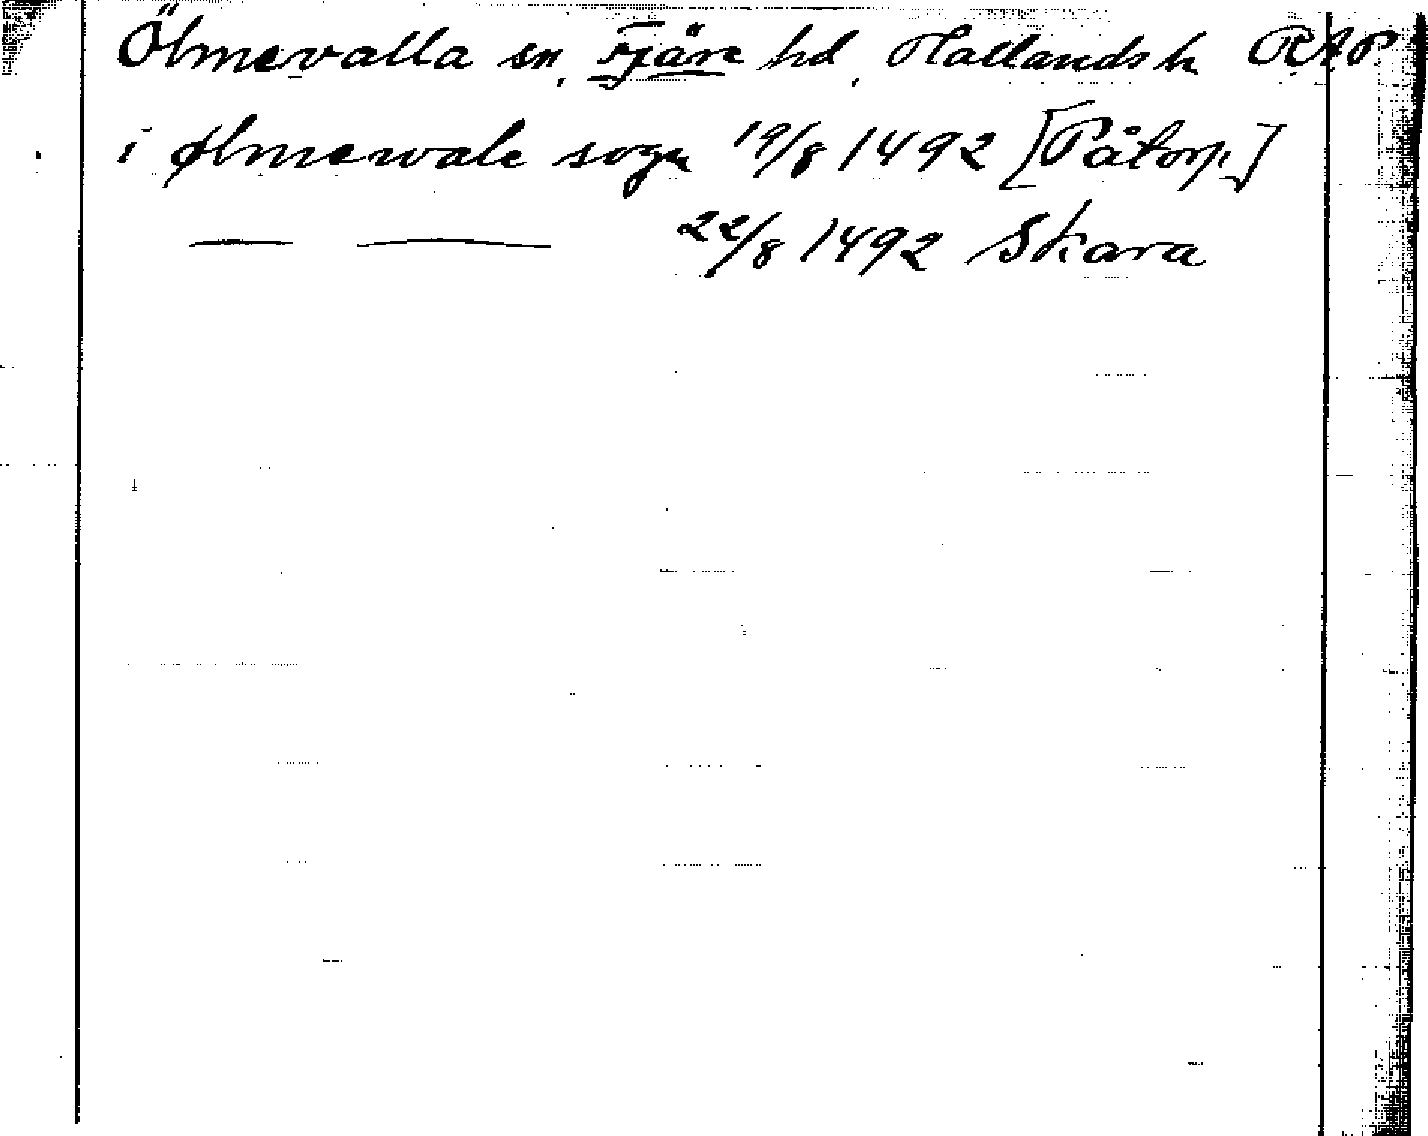 Ölmevalla sn, Fjäre hd, Hallands l. RAP
i ølmewale sogn 19/8 1492 [Påtorp]
— — 22/8 1492 Skara